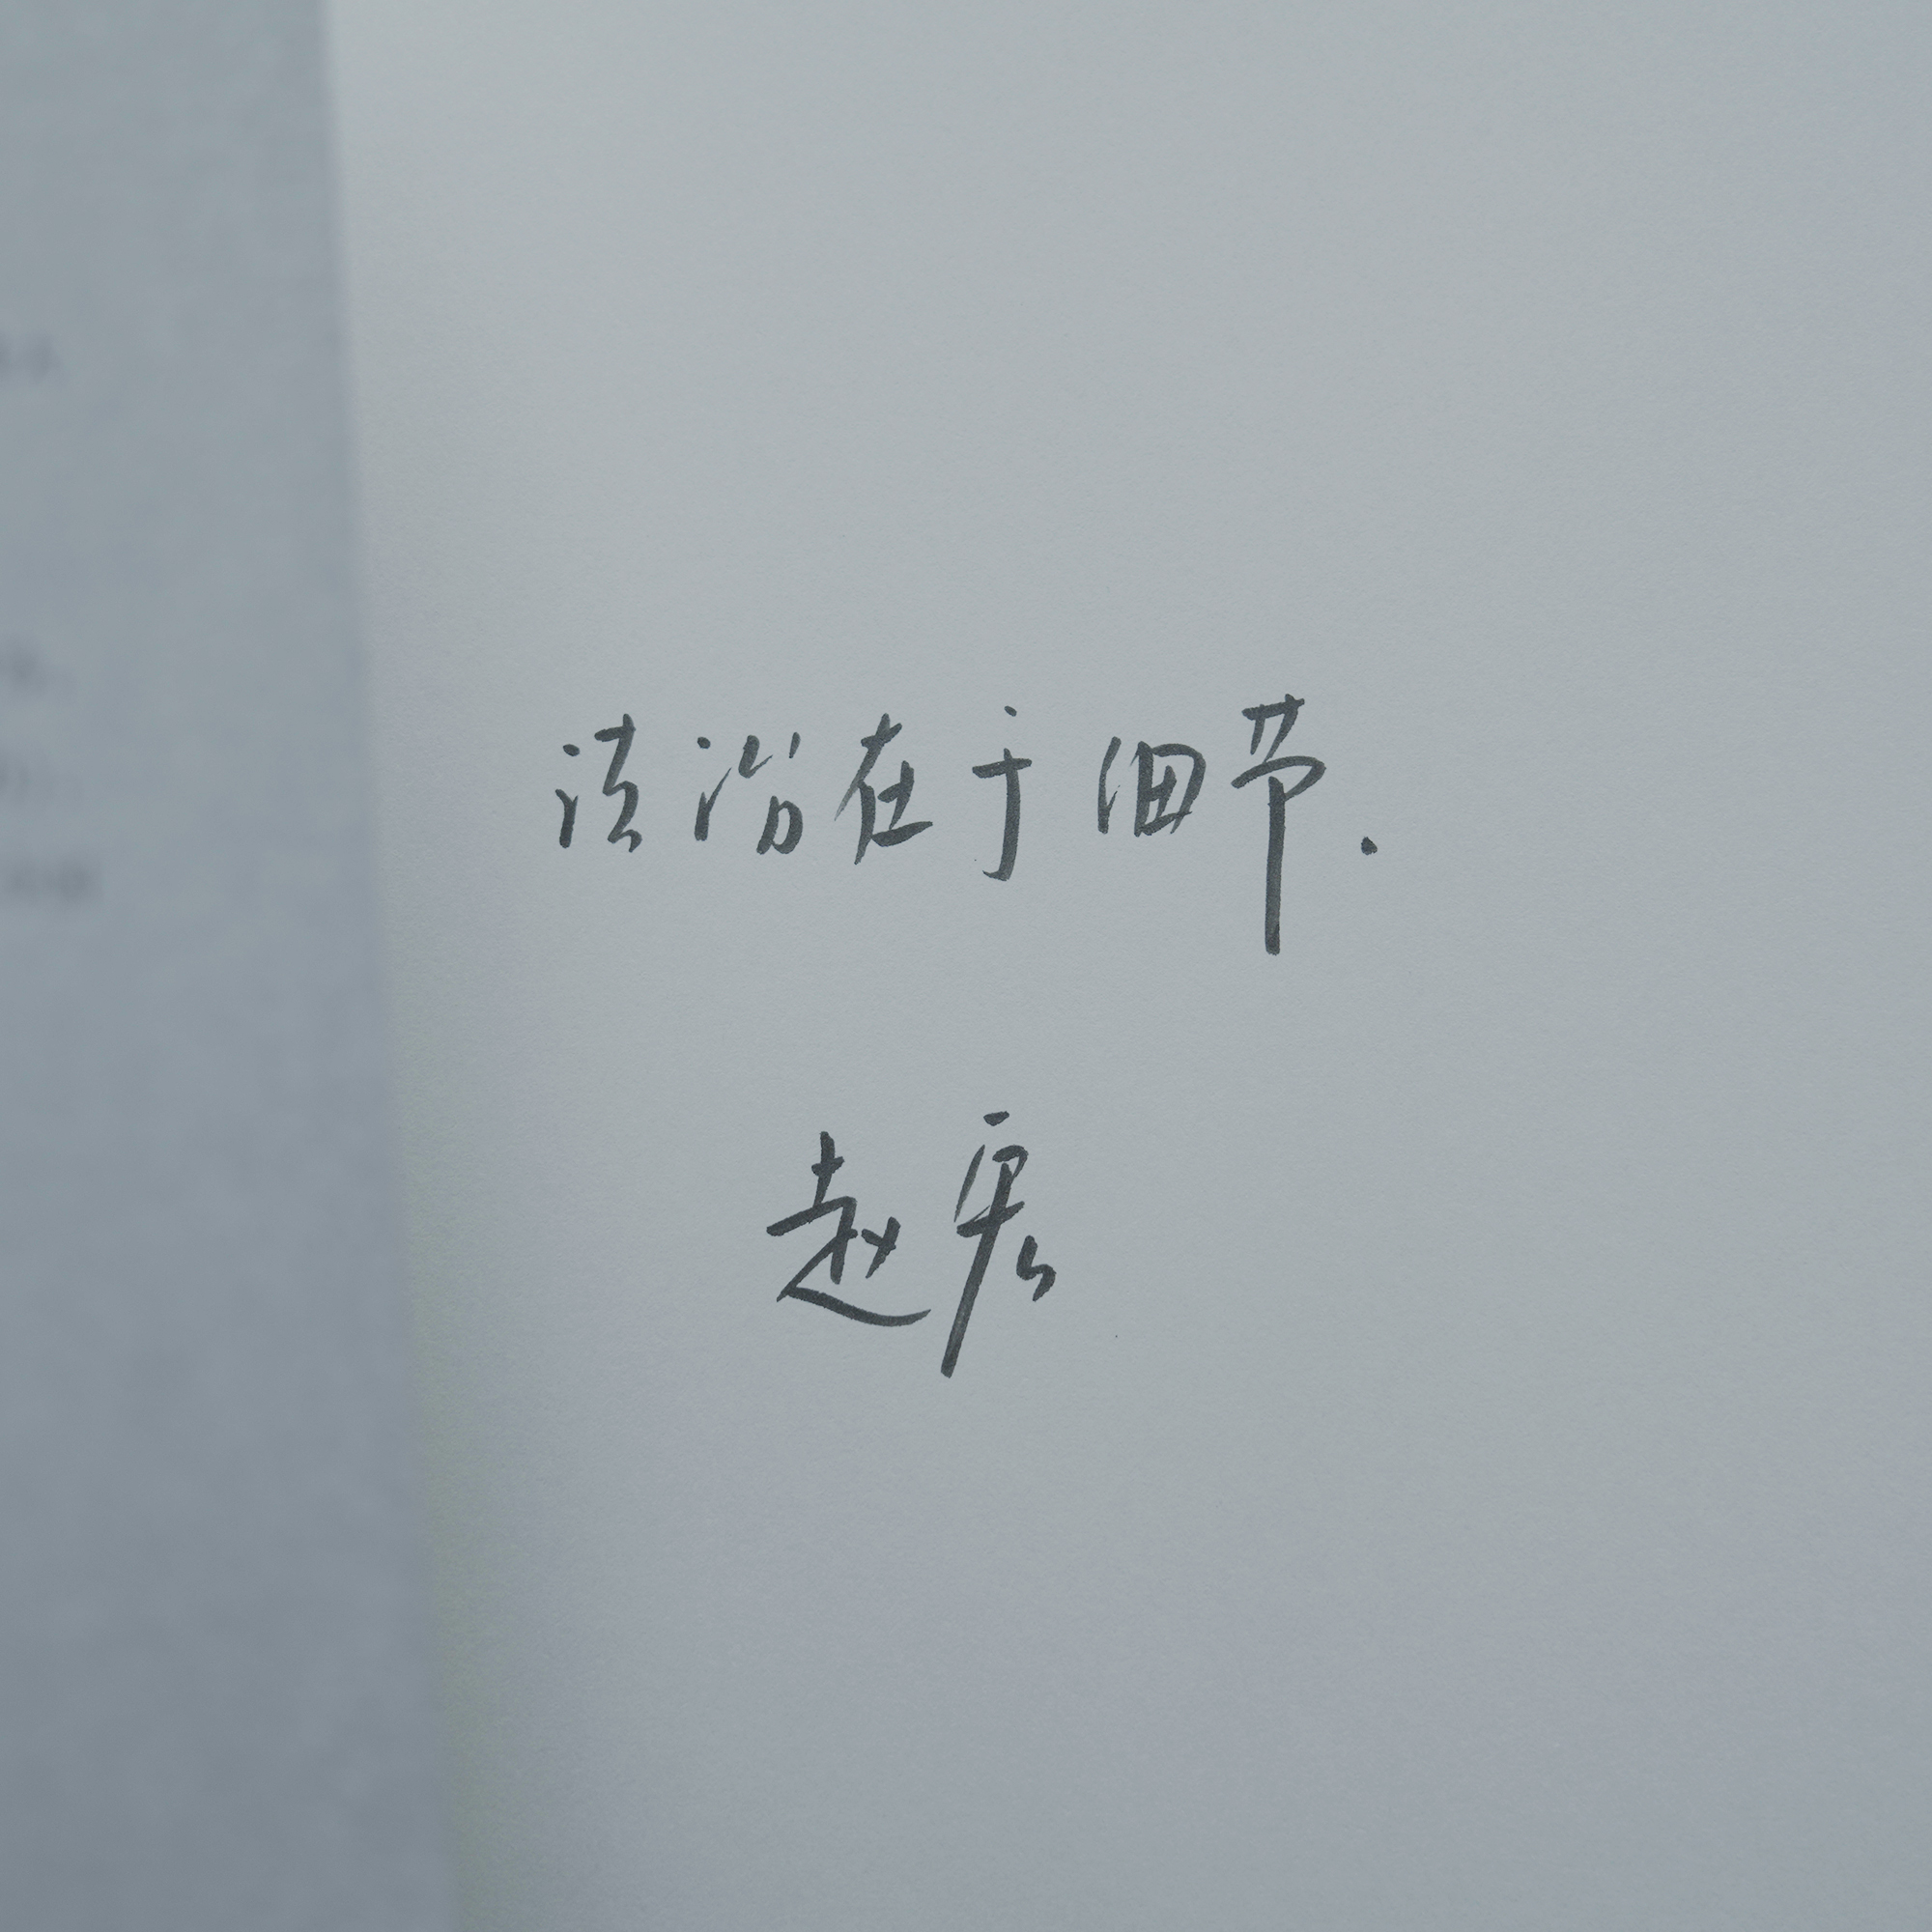 法治在于细节.
赵宏